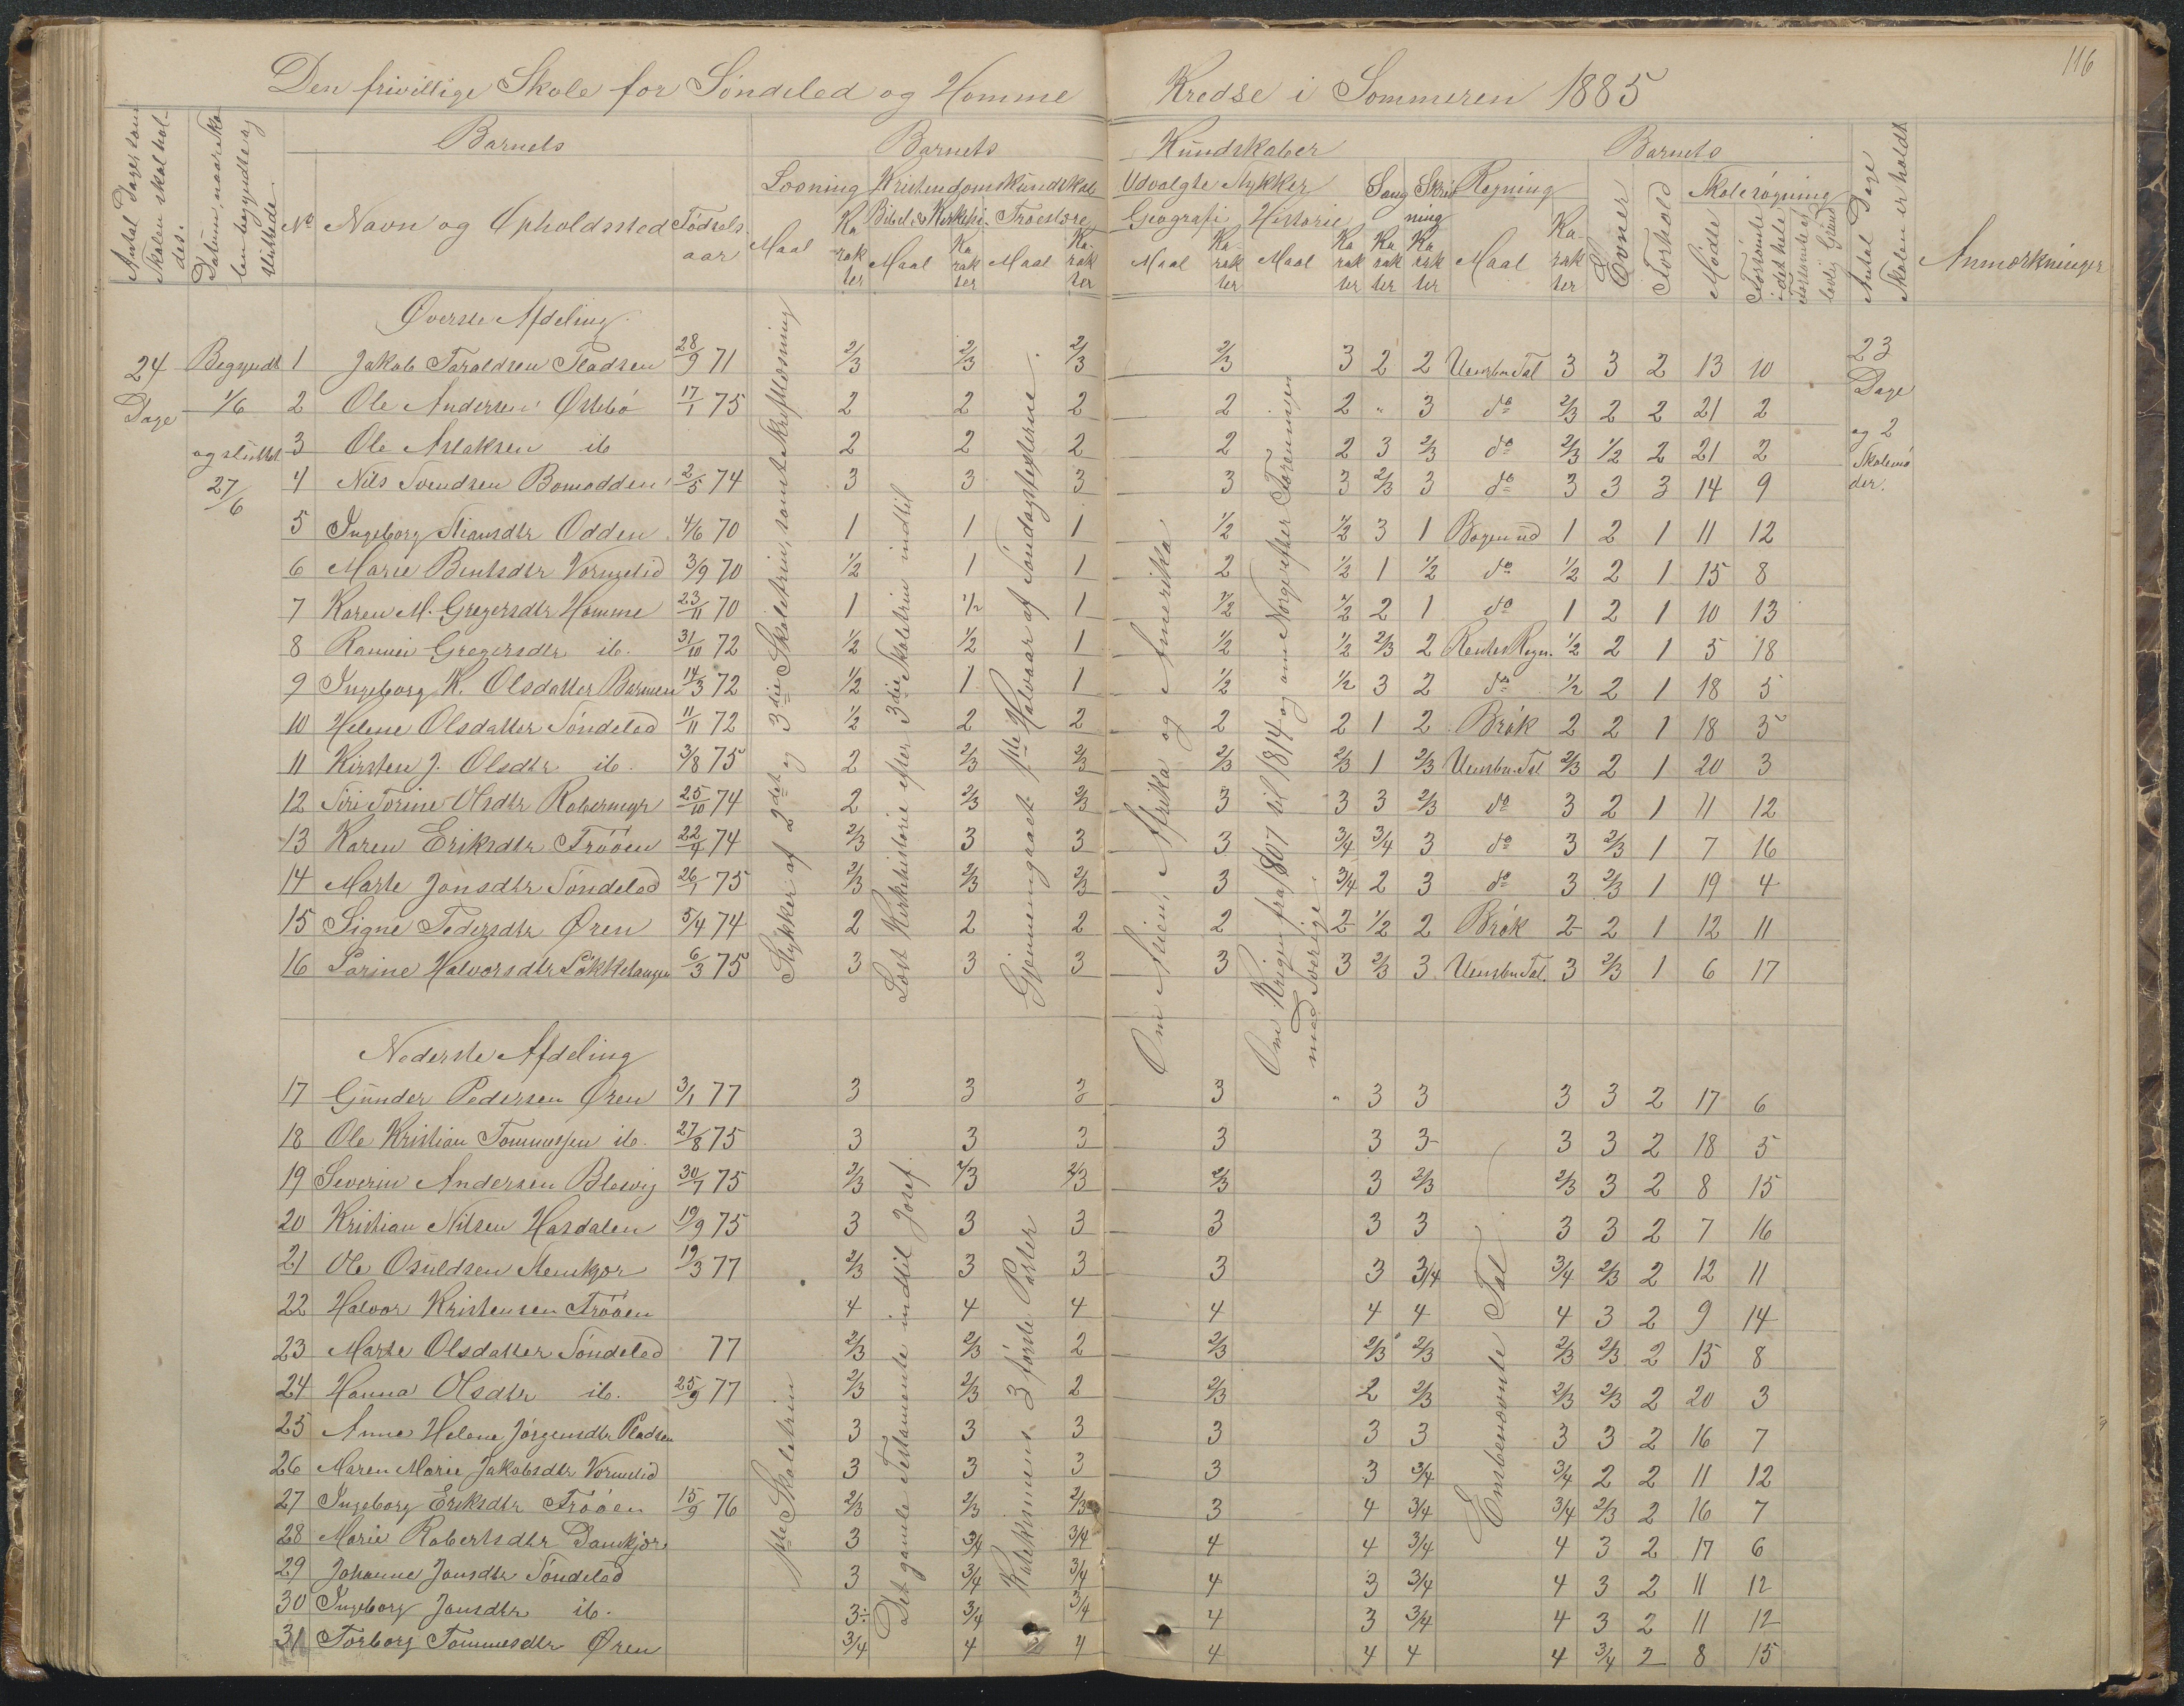 116
Den frivillige Skole for Söndeled og Homme Kredse i Sommeren 1885
Antal Dage som Skolen skal holdes.
Datum, naar Skolen begyndte og sluttede
Barnets
Barnets Kundskaber
Barnets
No Navn og Opholdssted Födselsaar
Læsning Kristendomskundskab Udvalgte Stykker Sang Skrivning Regning
Bibel & Kirkehi. Troeslære Geografi Historie
Maal Karakter Maal Karakter Maal Karakter Maal Karakter Maal Karakter Karakter Karakter Maal Karakter
Evner Forhold Skolesögning
Mödte Forsömte i det hele Forsömte af lovlig Grund
Antal Dage Skolen er holdt
Anmærkninger
24 Dage
Begyndt 1/6 og sluttet 27/6
23 Dage og 2 Skolemöder.
Stykker af 2det og 3die Skoletrin, samt Skriftlæsning
Læst Kirkehistorie efter 3die Skoletrin indtil
Gjennemgaaet 1ste Halvaar af Söndagsteksterne.
Om Asien, Afrika og Amerika
Om Krigen fra 1807 til 1814 og om Norge efter Foreningen med Sverige.
Överste Afdeling
1 Jakob Taraldsen Pladsen 28/9 71 2/3 2/3 2/3 2/3 3 2 2 Uensbn Tal 3 3 2 13 10
2 Ole Andersen Östebö 17/1 75 2 2 2 2 2 " 3 do 2/3 2 2 21 2
3 Ole Aslaksen ib 2 2 2 2 2 3 2/3 do 2/3 1/2 2 21 2
4 Nils Svendsen Bomodden 2/5 74 3 3 3 3 3 2/3 3 do 3 3 3 14 9
5 Ingeborg Stiansdtr Odden 4/6 70 1 1 1 1/2 1/2 3 1 Bogen ud 1 2 1 11 12
6 Marie Bentsdtr Vormelid 3/9 70 1/2 1 1 2 1/2 1 1/2 do 1/2 2 1 15 8
7 Karen M. Gregersdtr Homme 23/11 70 1 1/2 1 1/2 1/2 2 1 do 1 2 1 10 13
8 Rannei Gregersdtr ib. 31/10 72 1/2 1/2 1 1/2 1/2 2/3 2 Rentes Regn. 1/2 2 1 5 18
9 Ingeborg K. Olsdatter Barmen 14/3 72 1/2 1 1 1/2 1/2 3 2 do 1/2 2 1 18 5
10 Helene Olsdatter Söndeled 11/11 72 1/2 2 2 2 2 1 2 Brök 2 2 1 18 5
11 Kirsten J. Olsdtr ib. 3/8 75 2 2/3 2/3 2/3 2/3 1 2/3 Uensbn. Tal 2/3 2 1 20 3
12 Siri Torine Olsdtr Röbermyr 25/10 74 2 2/3 2/3 3 3 3 2/3 do 3 2 1 11 12
13 Karen Eriksdtr Trööen 22/4 74 2/3 3 3 3 3/4 3/4 3 do 3 2/3 1 7 16
14 Marte Jonsdtr Söndeled 26/1 75 2/3 2/3 2/3 3 3/4 2 3 do 3 2/3 1 19 4
15 Signe Pedersdtr Ören 5/4 74 2 2 2 2 2 1/2 2 Brök 2 2 1 12 11
16 Sarine Halvorsdtr Lökketangen 6/3 75 3 3 3 3 3 2/3 3 Uensbn Tal. 3 2/3 1 6 17
Nederste Afdeling
1ste Skoletrin
Det gamle Testamente indtil Josef.
Katekismens 3 förste Parter
Ensbenævnte Tal
17 Gunder Pedersen Ören 3/1 77 3 3 3 3 " 3 3 3 3 2 17 6
18 Ole Kristian Tommessen ib. 27/8 75 3 3 3 3 3 3 3 3 2 18 5
19 Severin Andersen Blesvig 30/7 75 2/3 2/3 2/3 2/3 3 2/3 2/3 3 2 8 15
20 Kristian Nilsen Hasdalen 19/9 75 3 3 3 3 3 3 3 3 2 7 16
21 Ole Osuldsen Stemkjær 19/3 77 2/3 3 3 3 3 3/4 3/4 2/3 2 12 11
22 Halvor Kristensen Trööen 4 4 4 4 4 4 4 3 2 9 14
23 Marte Olsdatter Söndeled 77 2/3 2/3 2 2/3 2/3 2/3 2/3 2/3 2 15 8
24 Hanna Olsdtr ib. 25/9 77 2/3 2/3 2 2/3 2 2/3 2/3 2/3 2 20 3
25 Anne Helene Jörgensdtr Pladsen 3 3 3 3 3 3 3 3 2 16 7
26 Maren Marie Jakobsdtr Vormelid 3 3 3 3 3 3/4 3/4 2 2 11 12
27 Ingeborg Eriksdtr Trööen 15/9 76 2/3 2/3 2/3 3 4 3/4 3/4 2/3 2 16 7
28 Marie Robertsdtr Damkjær 3 3/4 3/4 4 4 3/4 4 3 2 17 6
29 Johanne Jonsdtr Söndeled 3 3/4 3/4 4 3 3/4 4 3 2 11 12
30 Ingeborg Jonsdtr ib. 3÷ 3/4 3/4 4 3 3/4 4 3 2 11 12
31 Torborg Tommesdtr Ören 3/4 4 4 4 4 4 4 3/4 2 8 15